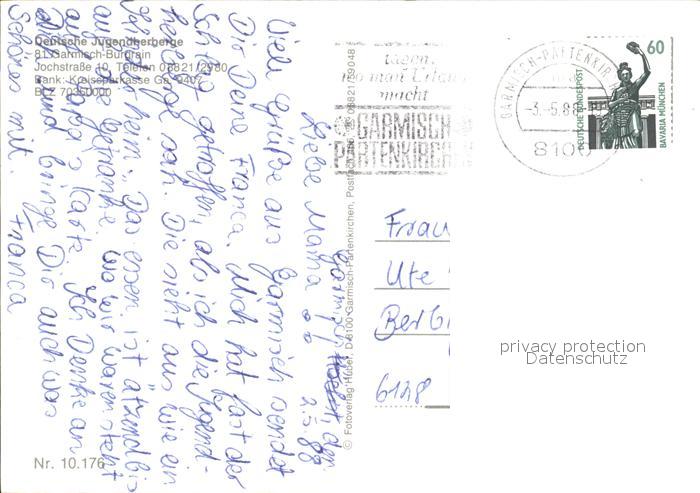 Deutsche Jugendherberge
81 Garmisch-Burgrain
Jochstraße 10, Telefon 08821/2980
Bank: Kreissparkasse Ga. 9407
BLZ 70350000
tagen,
wo man Urlaub
macht
GARMISCH
PARTENKIRCHEN
GARMISCH-PARTENKIR
-3.-5.88
8100
60
DEUTSCHE BUNDESPOST
BAVARIA MÜNCHEN
Garmisch, den
2.5.88
Liebe Mama
Viele Grüße aus Garmisch sendet
Dir Deine Franca. Mich hat fast der
Schlag getroffen, als ich die Jugend-
herberge sah. Die sieht aus wie ein
Das essen ist ätzend bis
wo wir waren steht
Karte. Ich Denke an
Dich und bringe Dir auch was
Schönes mit.
Franca
© Fotoverlag Huber, D-8100 Garmisch-Partenkirchen, Postfach
Frau
Ute
6128
privacy protection
Datenschutz
Nr. 10.176